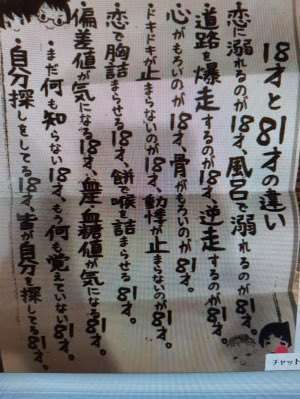 18才と81才の違い
恋に溺れるのが18才、風呂で溺れるのが81才。
道路を爆走するのが18才、逆走するのが81才。
心がもろいのが18才、骨がもろいのが81才。
ドキドキが止まらないのが18才、動悸が止まらないのが81才。
恋で胸詰まらせる18才、餅で喉を詰まらせる81才。
偏差値が気になる18才、血糖値が気になる81才。
まだ何も知らない18才、もう何も覚えていない81才。
自分探しをしてる18才、皆が自分を探してる81才。
チャット